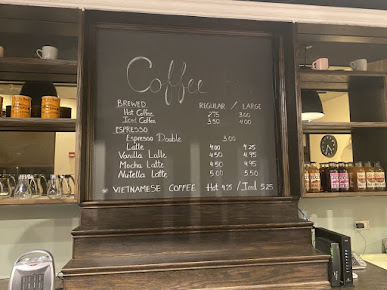 Coffee
BREWED REGULAR / LARGE
Hot Coffee 2.75 3.00
Iced Coffee 3.50 4.00
ESPRESSO
Espresso Double 3.00
Latte 4.00 4.25
Vanilla Latte 4.50 4.95
Mocha Latte 4.50 4.95
Nutella Latte 5.00 5.50
VIETNAMESE COFFEE Hot 4.75 / Iced 5.25